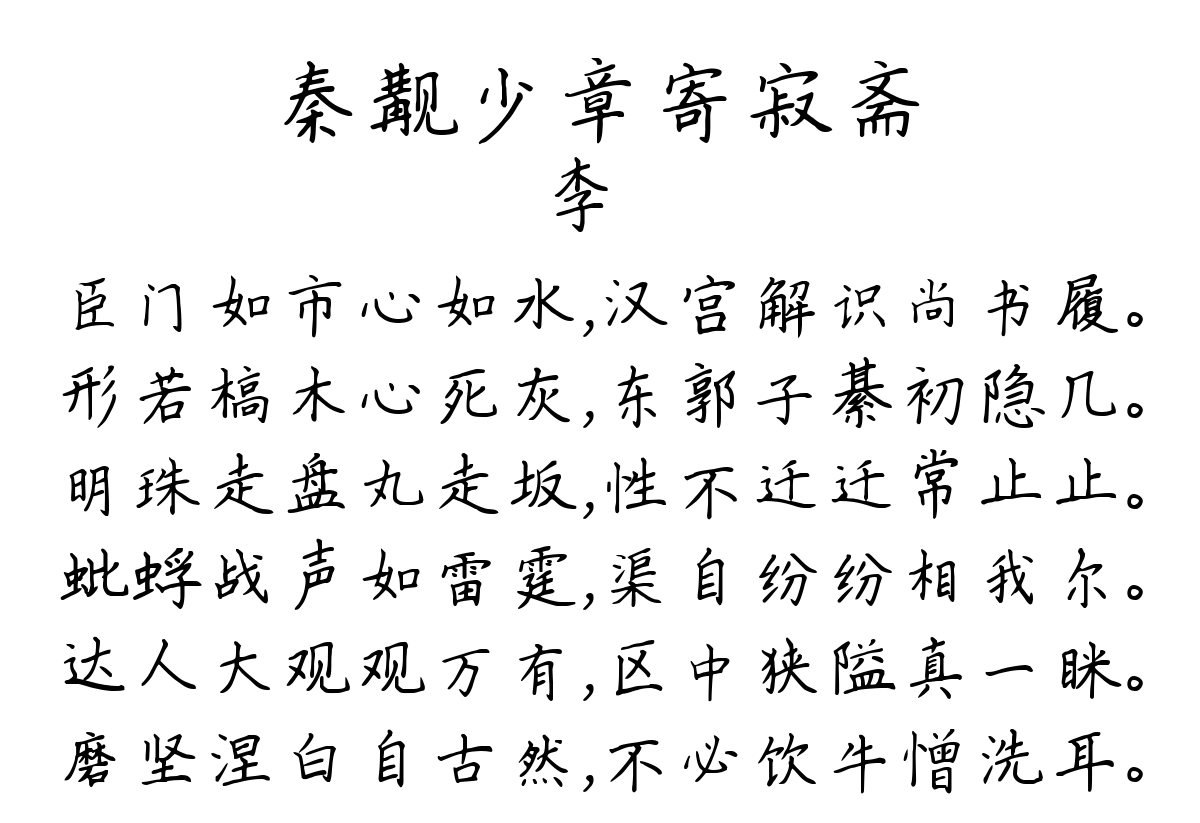 秦觏少章寄寂斋
李
臣门如市心如水,汉宫解识尚书履。
形若槁木心死灰,东郭子綦初隐几。
明珠走盘丸走坂,性不迁迁常止止。
蚍蜉战声如雷霆,渠自纷纷相我尔。
达人大观观万有,区中狭隘真一眯。
磨坚涅白自古然,不必饮牛憎洗耳。